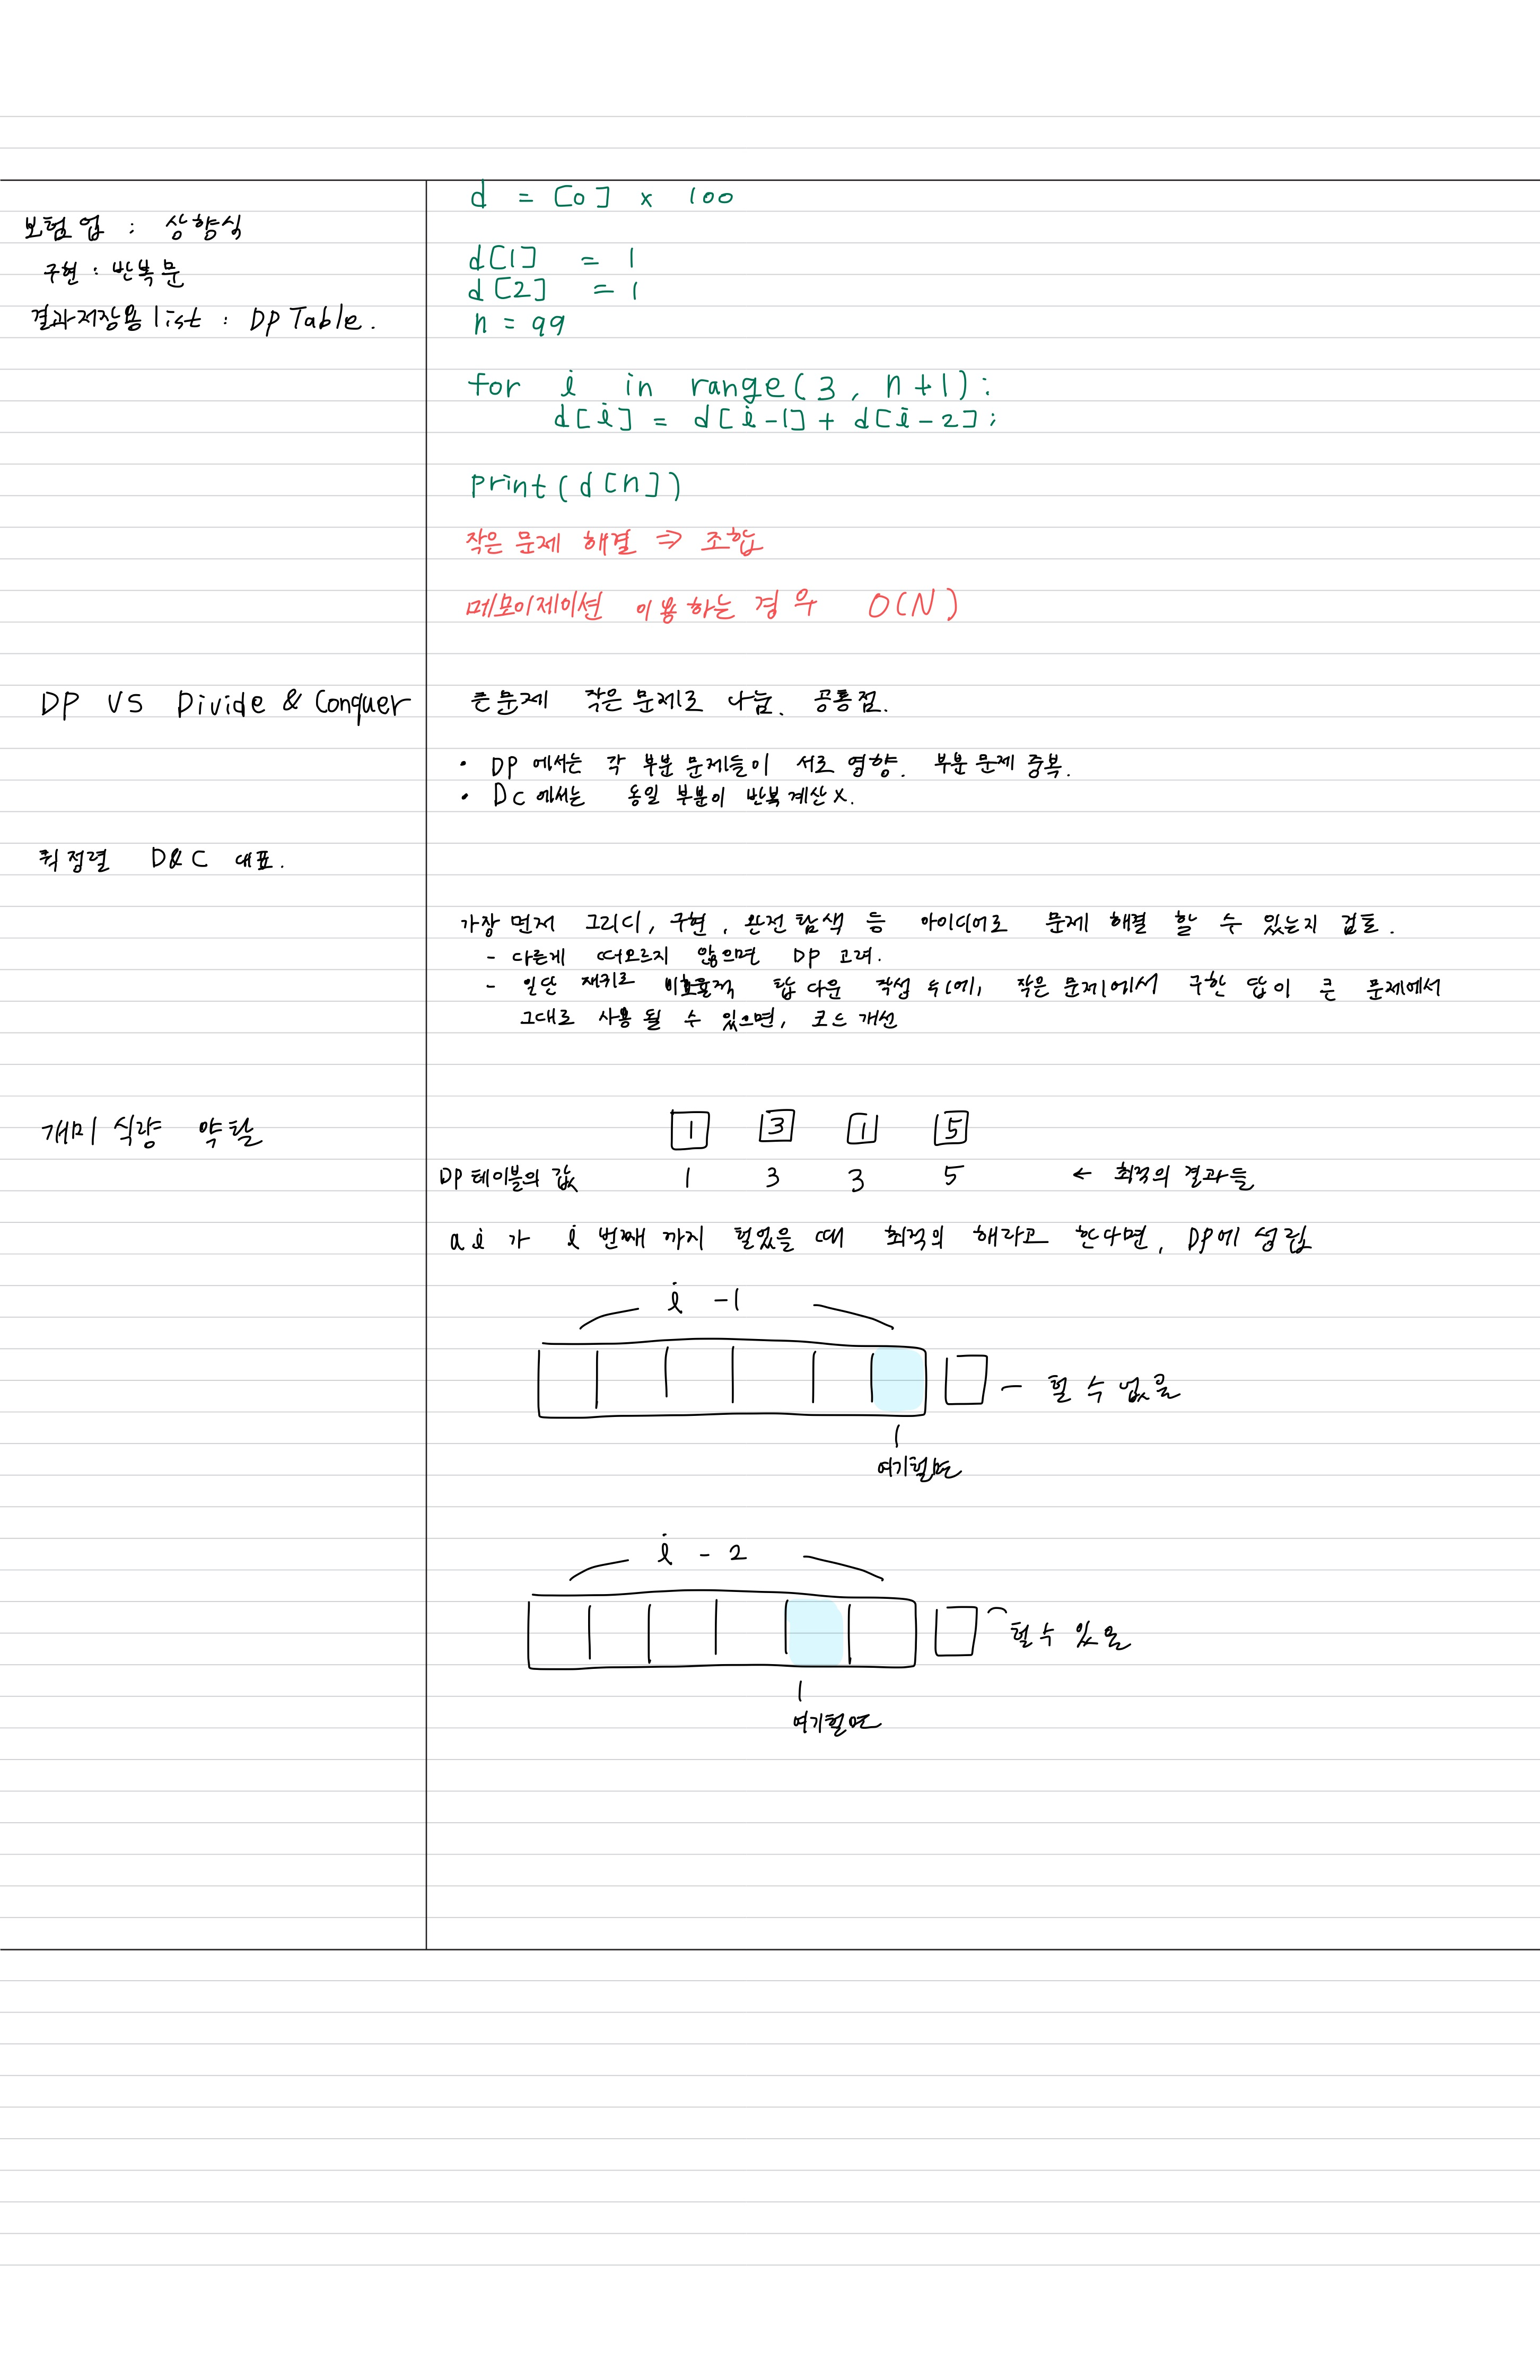 보텀 업 : 상향식
구현 : 반복문
결과저장용 list : DP Table.
d = [0] x 100
d[1] = 1
d[2] = 1
n = 99
for i in range(3, n+1):
d[i] = d[i-1] + d[i-2];
print(d[n])
작은 문제 해결 ⇒ 조합
메모이제이션 이용하는 경우 O(N)
DP VS Divide & Conquer
큰문제 작은 문제로 나눔. 공통점.
• DP 에서는 각 부분 문제들이 서로 영향. 부분 문제 중복.
• DC 에서는 동일 부분이 반복 계산 X.
퀵 정렬 D&C 대표.
가장 먼저 그리디, 구현, 완전 탐색 등 아이디어로 문제 해결 할 수 있는지 검토.
- 다른게 떠오르지 않으면 DP 고려.
- 일단 재귀로 비효율적 탑 다운 작성 뒤에, 작은 문제에서 구한 답이 큰 문제에서
그대로 사용 될 수 있으면, 코드 개선
개미 식량 약탈
1 3 1 5
DP 테이블의 값 1 3 3 5 ← 최적의 결과들
ai 가 i 번째 까지 털었을 때 최적의 해라고 한다면, DP에 성립
i - 1
털 수 없음
여기털면
i - 2
털수 있음
여기털면